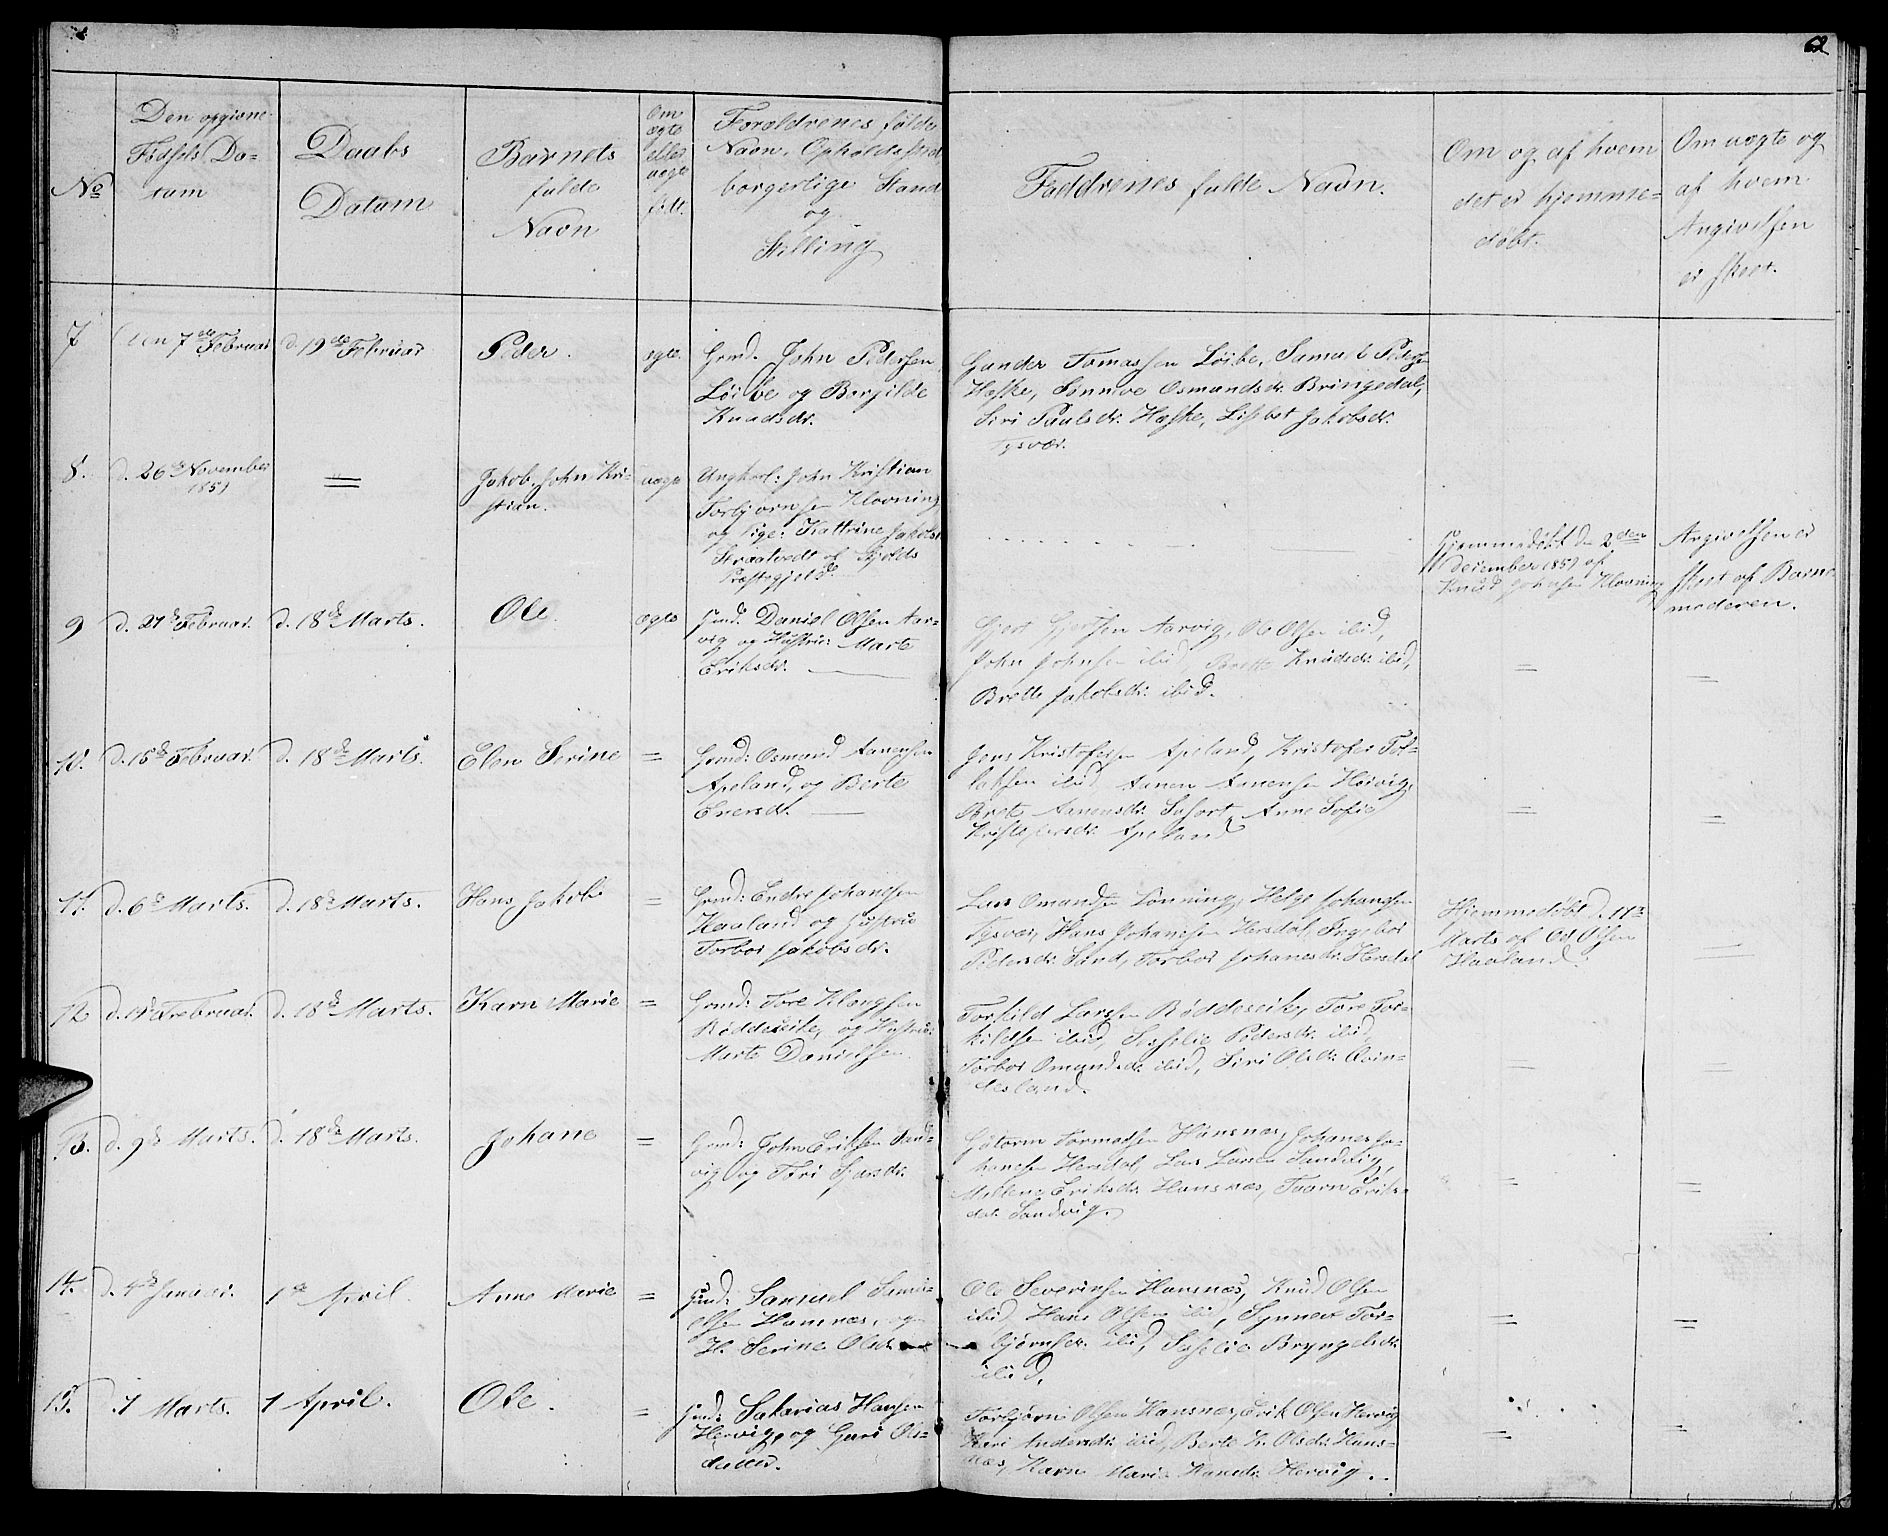 62
No
Den opgivne
Fødsels Da-
tum
Daabs
Datum
Barnets
fulde
Navn
Om
ægte
eller
uægte
født.
Forældrenes fulde
Navn, Opholdssted
borgerlige Stand
og
Stilling
Faddrenes fulde Navn.
Om og af hvem
det er hjemme-
døbt.
Om uægte og
af hvem
Angivelsen
er skeet.
7
den 7de Februar
d. 19de Februar
Peder.
ægte.
Grmd. John Pedersen
Løibe og Borgilde
Knudsdr.
Gunder Tomassen Løibe, Samuel Peders
Haske, Sønneve Osmundsdr. Bringedal,
Siri Paulsdr. Haske, Lisbet Jakobsdr.
Tysvær.
8.
d. 26de November
1851
=
Jakob John Kri-
stian.
uægte
Ungkarl: John Kristian
Torbjørnsen Klovning
og Pige: Kattrine Jakobsd
Straatvedt af Fjelds
Præstegjeld.
Hjemmedøbt d. 2den
December 1851 af
Knud Johnsen Klovning
Angivelsen er
skeet af Barne
moderen.
9
d. 27de Februar.
d. 18de Marts.
Ole.
ægte
Gmd. Daniel Olsen Aar-
vig og Hustrue Marte
Eriksdr.
Gjert Gjertsen Aarvig, Ole Olsen ibid,
John Johnsen ibid, Brette Knudsdr. ibid,
Brette Jakobsdr. ibid.
=
=
10.
d. 15de Februar.
d. 18de Marts.
Elen Serine
=
Grmd: Osmund Aanensen
Apeland, og Berte
Enersdr.
Jens Kristofersen Apeland, Kristofer Tol-
laksen ibid, Aanen Aanensen Høivig,
Berte Aanensdr. , Anne Sofie
Kristofersdr. Apeland
=
=
11.
d. 6de Marts.
d. 18de Marts.
Hans Jakob
=
Grmd: Endre Johansen
Haaland og Hustrue
Torbor Jakobsdr.
Lars Omundsen Lønning, Helge Johansen
Tysvær, Hans Johansen Hersdal, Ingebor
Pedersdr. Sand, Torbor Johanesdr. Hersdal
Hjemmedøbt d. 11te
Marts af Ole Olsen
Haaland.
=
12
d. Februar.
d. 18de Marts.
Karn Marie
=
Grmd: Tore Klougsen
Røddeseike, og Hustrue:
Marte Danielsen.
Torkild Larsen Røddeseike, Tore Tor-
kildsen ibid, Sisselie Pedersdr. ibid,
Torbor Omundsdr. ibid, Siri Olsdr. Qvin-
desland.
=
=
13.
d. 9de Marts.
d. 18de Marts.
Johane
=
Grmd: John Eriksen Sand-
vig og Tori Sjursdr.
Gutorm Tormodsen Hansnæs, Johanes Jo-
hanesen Hersdal, Lars Larsen Sandvig,
Malene Eriksdr. Hansnæs, Taarn Eriks-
dr. Sandvig.
=
=
14.
d. 4de Januar.
1de April.
Anne Marie
=
Gmd: Samuel Samu-
elsen Hansnæs, og
H. Serine Olsdr.
Ole Severinsen Hansnæs, Knud Olsen
ibid, Hans Olsen ibid, Synneve Tor-
bjørnsdr. ibid, Siselie Bryngelsdr.
ibid,
=
=
15.
7 Marts.
1 April.
Ole.
=
Gmd: Sakarias Hansen
Hervig, og Guri Ols-
datter.
Torbjørn Olsen Hansnæs, Erik Olsen Hervig
Kari Andersdr. ibid, Berte K. Olsdr. Hans-
næs, Karn Marie Hansdr. Hervig.
=
=